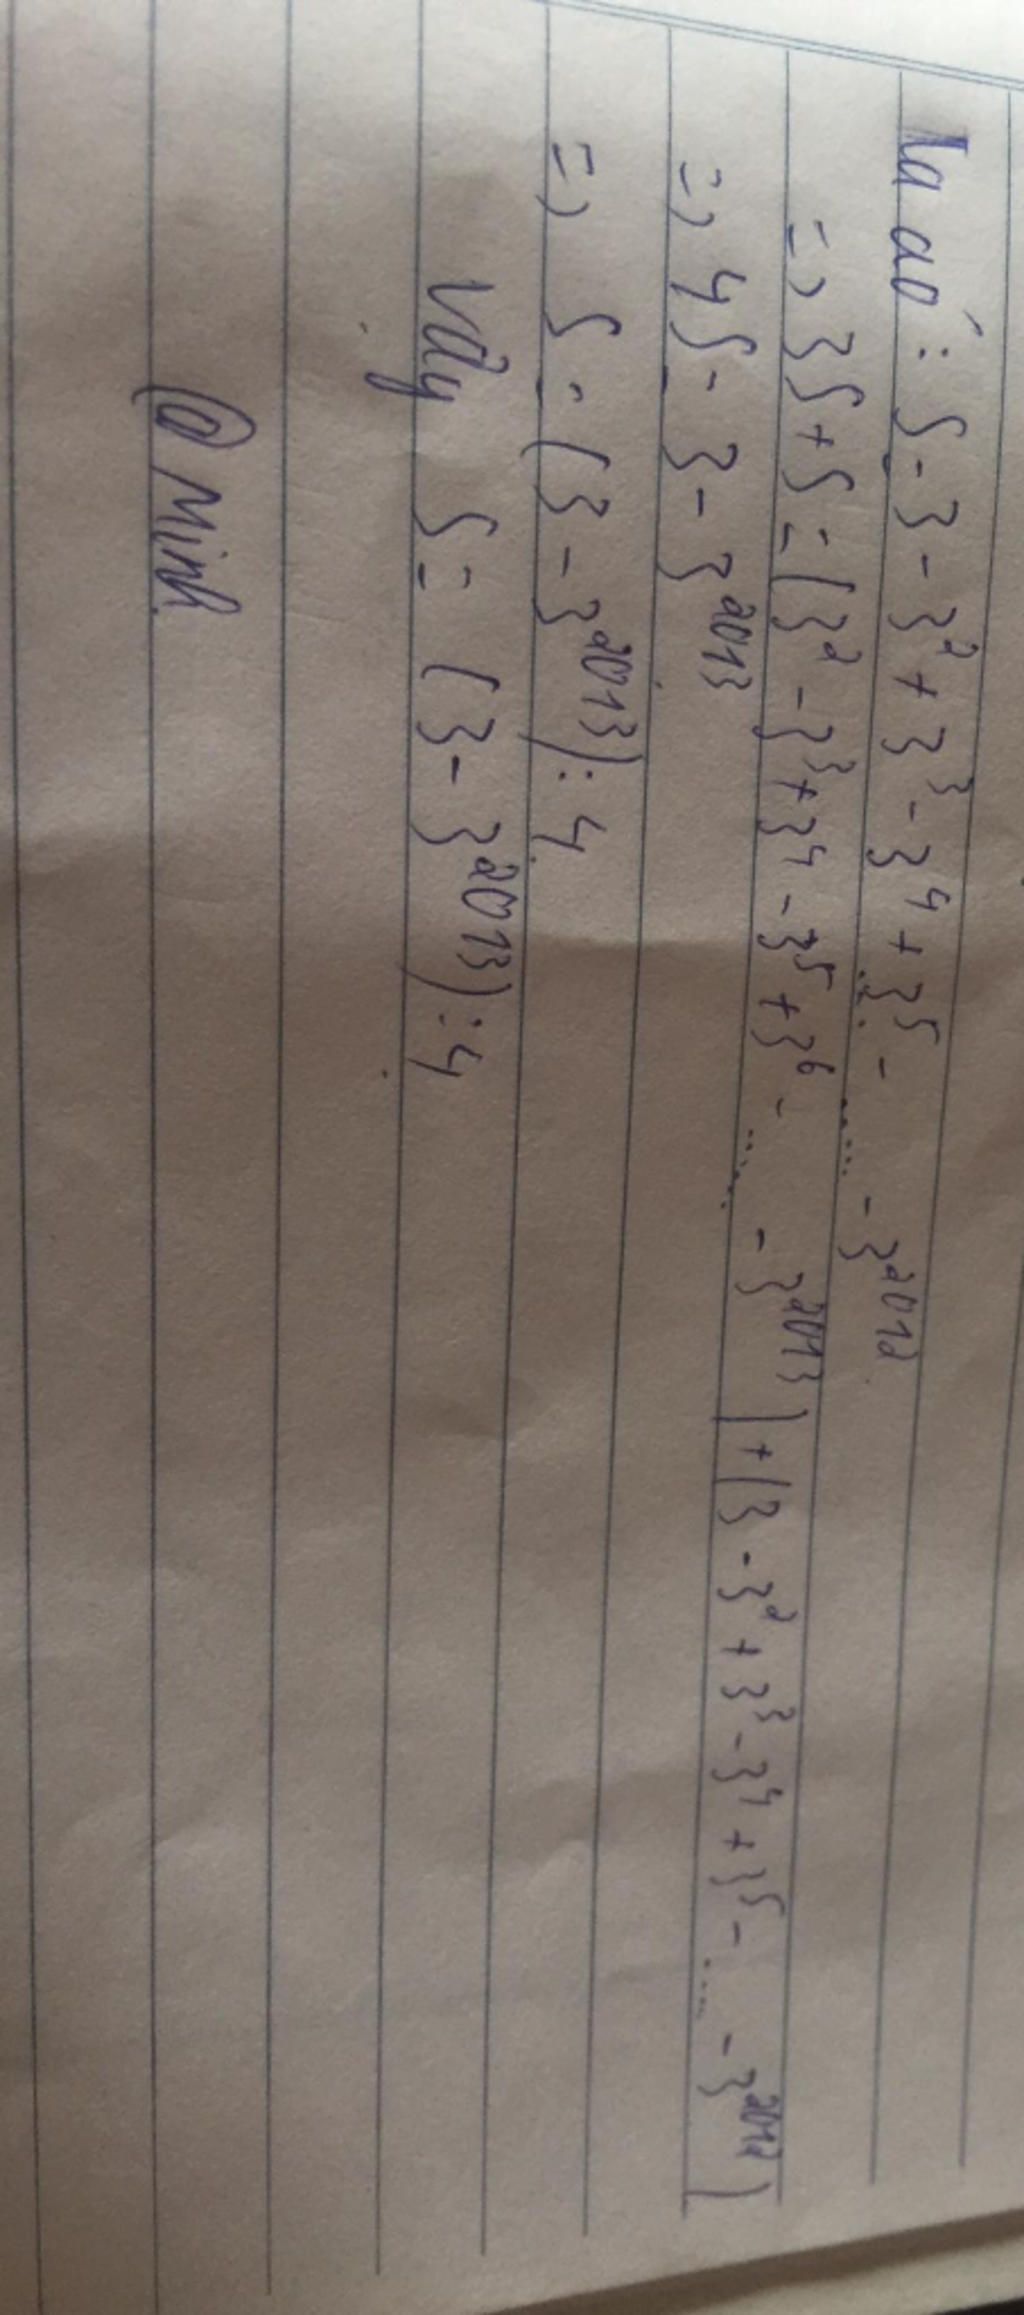 Ta có: S = 3 - 3² + 3³ - 3⁴ + 3⁵ - ..... - 3²⁰¹²
=> 3S + S = (3² - 3³ + 3⁴ - 3⁵ + 3⁶ - ..... - 3²⁰¹³) + (3 - 3² + 3³ - 3⁴ + 3⁵ - .... - 3²⁰¹²)
=> 4S = 3 - 3²⁰¹³
=> S = (3 - 3²⁰¹³) : 4
Vậy S = (3 - 3²⁰¹³) : 4
@ Minh